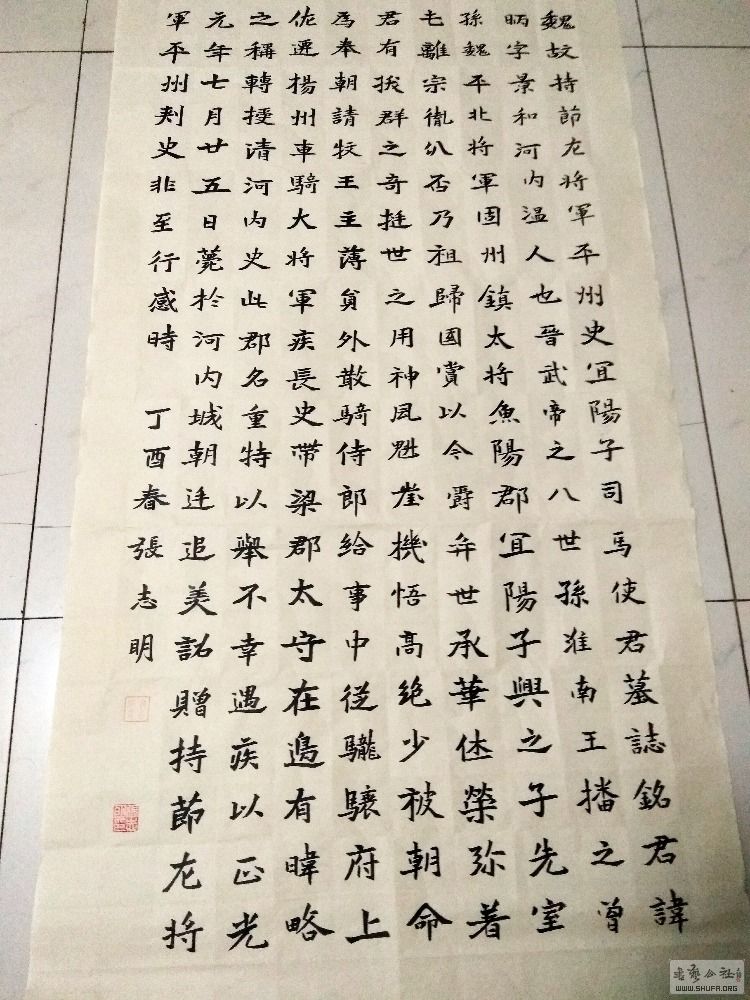 魏故持節左將軍平州史宜陽子司馬使君墓誌銘君諱
昞字景和河内温人也晉武帝之八世孫淮南王播之曾
孫魏平北將軍固州鎮太將魚陽郡宜陽子興之子先室
乇離宗胤分否乃祖歸國賞以今爵弈世承華休榮弥著
君有拔群之奇挺世之用神風魁崖機悟高絶少被朝命
爲奉朝請牧王主薄負外散騎侍郎給事中從驤府上
佐遷楊州車騎大將軍疾長史帶梁郡太守在邊有暐略
之稱轉授清河内史此郡名重特以舉不幸遇疾以正光
元年七月廿五日薨於河内城朝廷追美詔贈持節左將
軍平州刺史非至行感時
丁酉春張志明
WWW.SHUFA.ORG